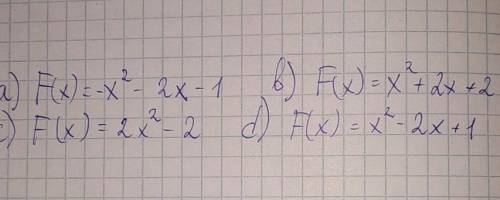 a) F(x)=-x²-2x-1 b) F(x)=x²+2x+2
c) F(x)=2x²-2 d) F(x)=x²-2x+1